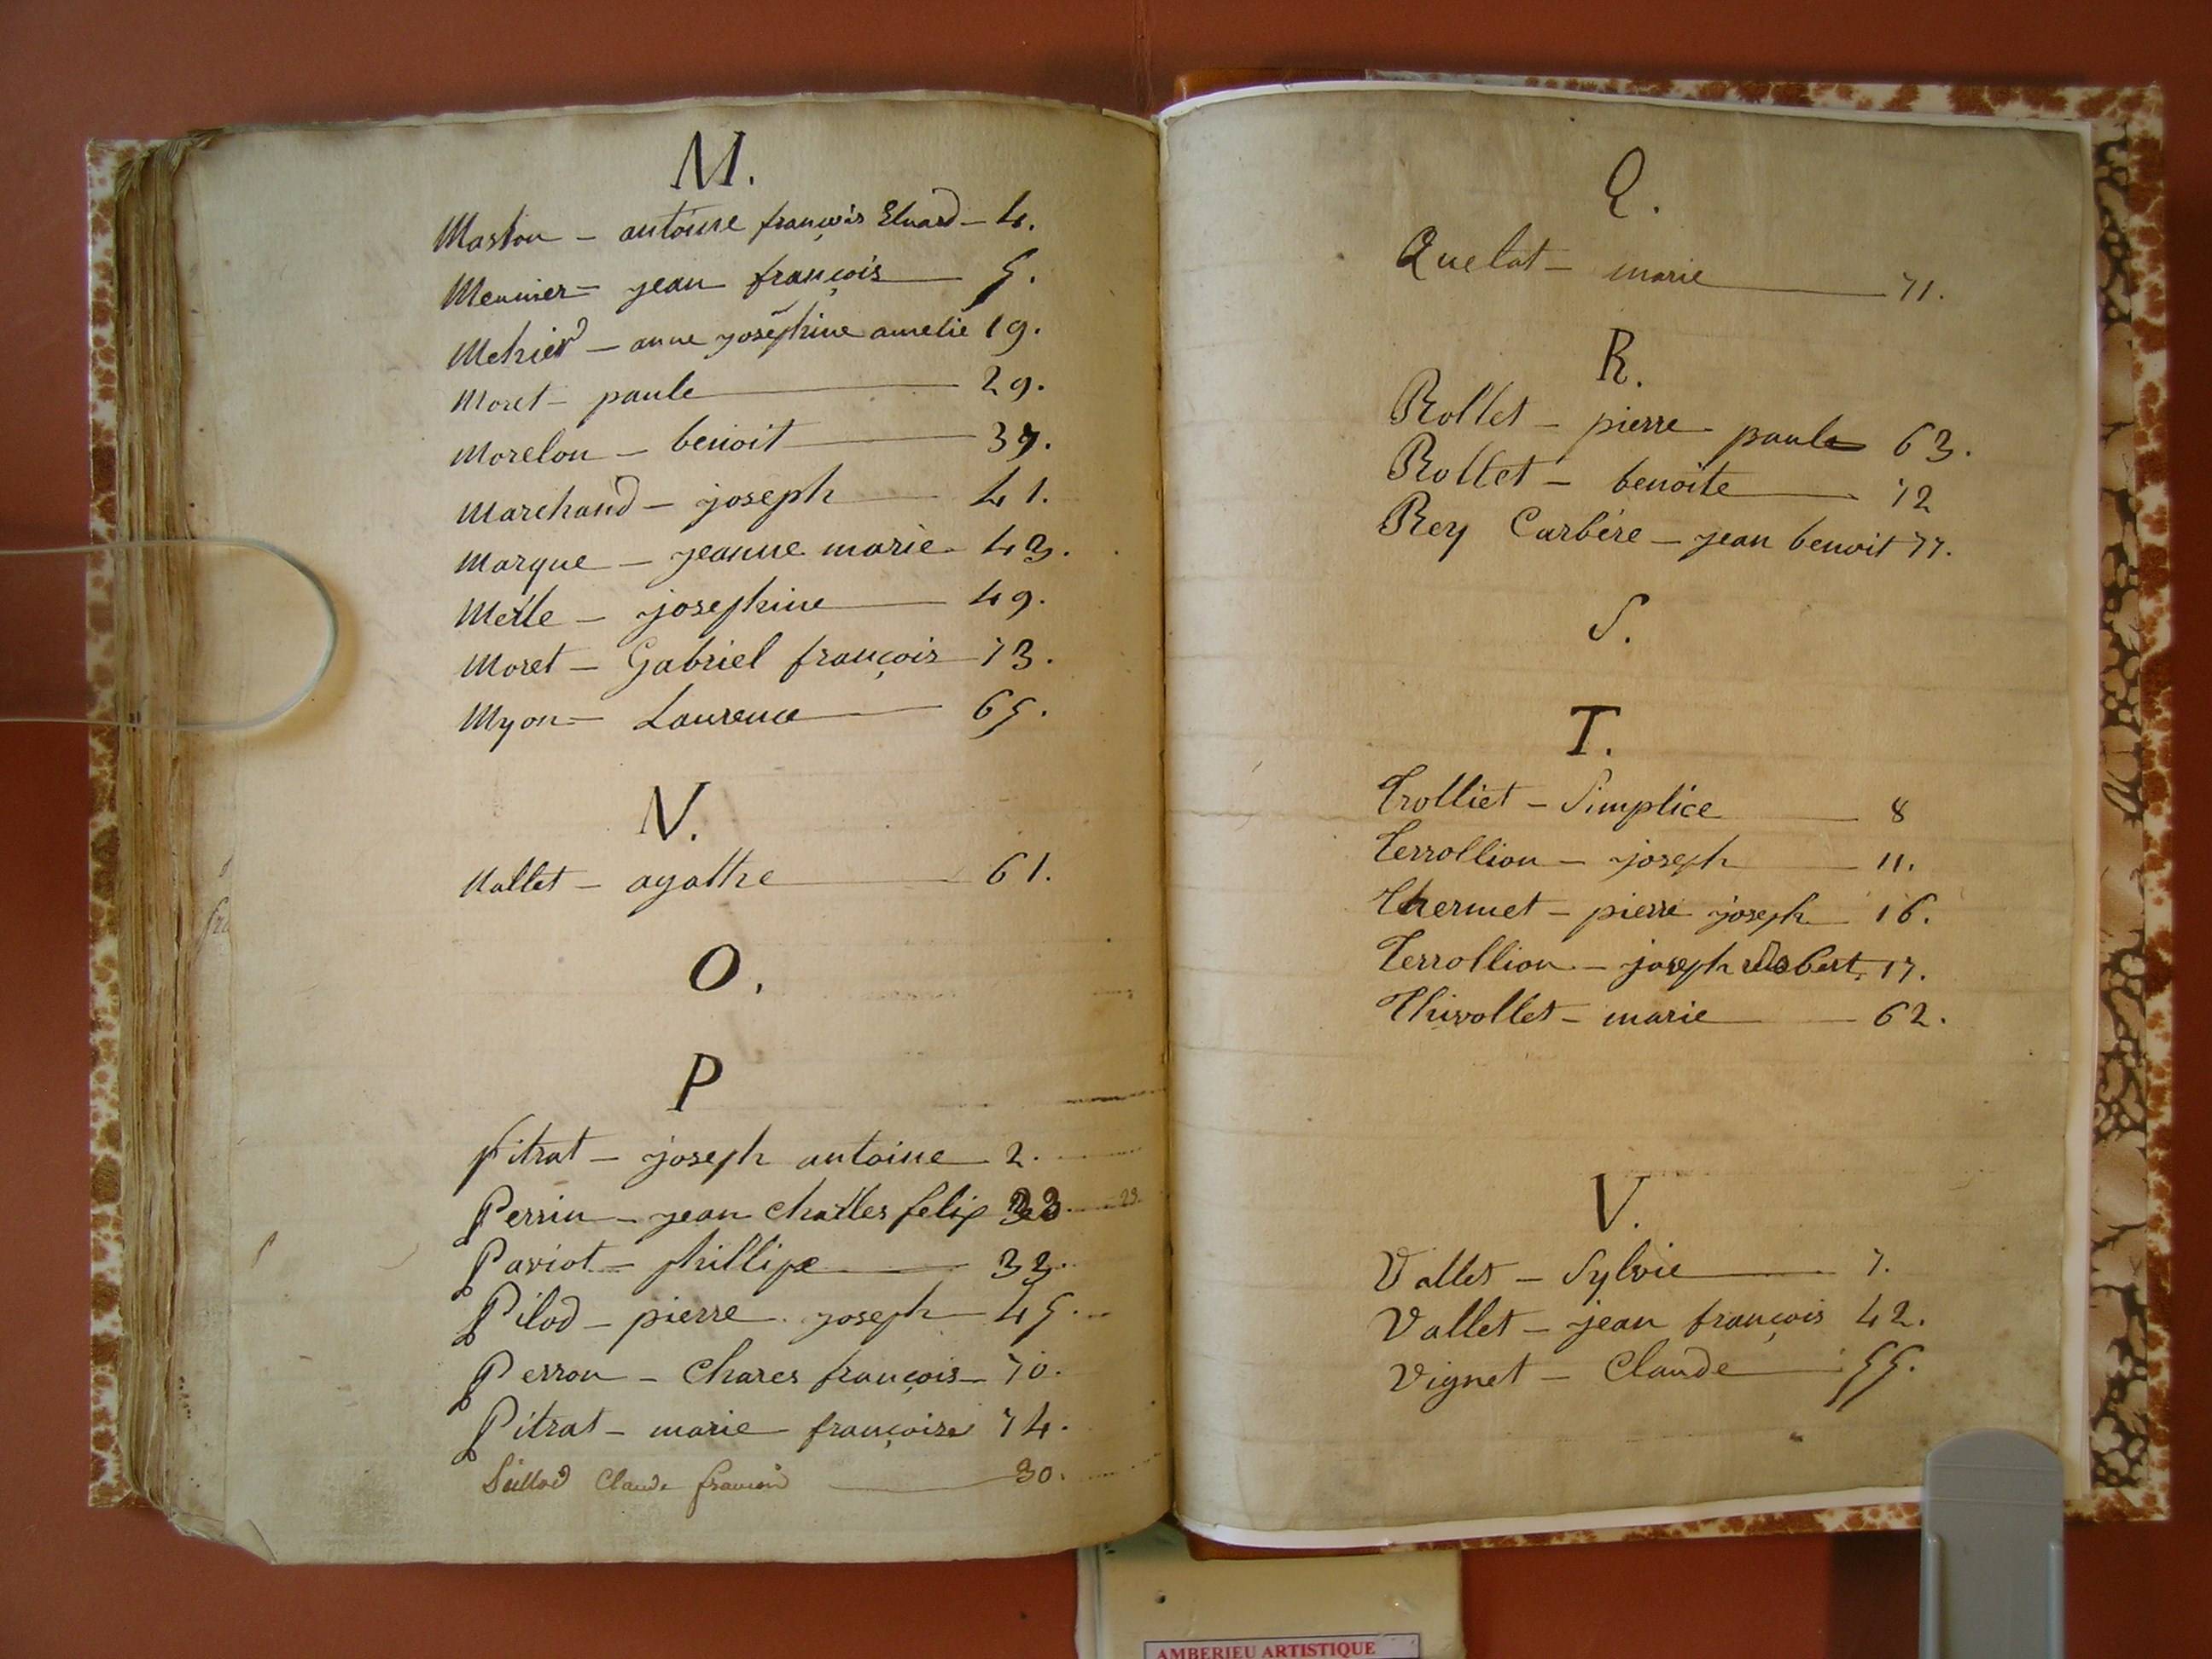 M.
Maston - antoine françois Eduard - 4.
Meunier - jean françois 5.
Mehier - anne joséphine amelie 19.
Moret - paule 29.
Morelon - benoit 37.
Marchand - joseph 41.
Marque - jeanne marie 43.
Merle - josephine 49.
Moret - Gabriel françois 73.
Myon - Laurence 65.
N.
Nallet - agathe 61.
O.
P
Pitrat - joseph antoine 2.
Perrin - jean charles felix 23 23.
Paviot - phillipe 32.
Pilod - pierre joseph 45.
Perron - Chares françois 70.
Pitrat - marie françoise 74.
Claude francois 30.
Q.
Quelat - marie 71.
R.
Rollet - pierre paule 63.
Rollet - benoite 72
Rey Carbère - jean benoit 77.
S.
T.
Trolliet - Simplice 8
Terrollion - joseph 11.
Thermet - pierre joseph 16.
Terrollion - joseph 17.
Thivollet - marie 62.
V.
Vallet - Sylvie 7.
Vallet - jean françois 42.
Vignet - Claude 55.
AMBERIEU ARTISTIQUE